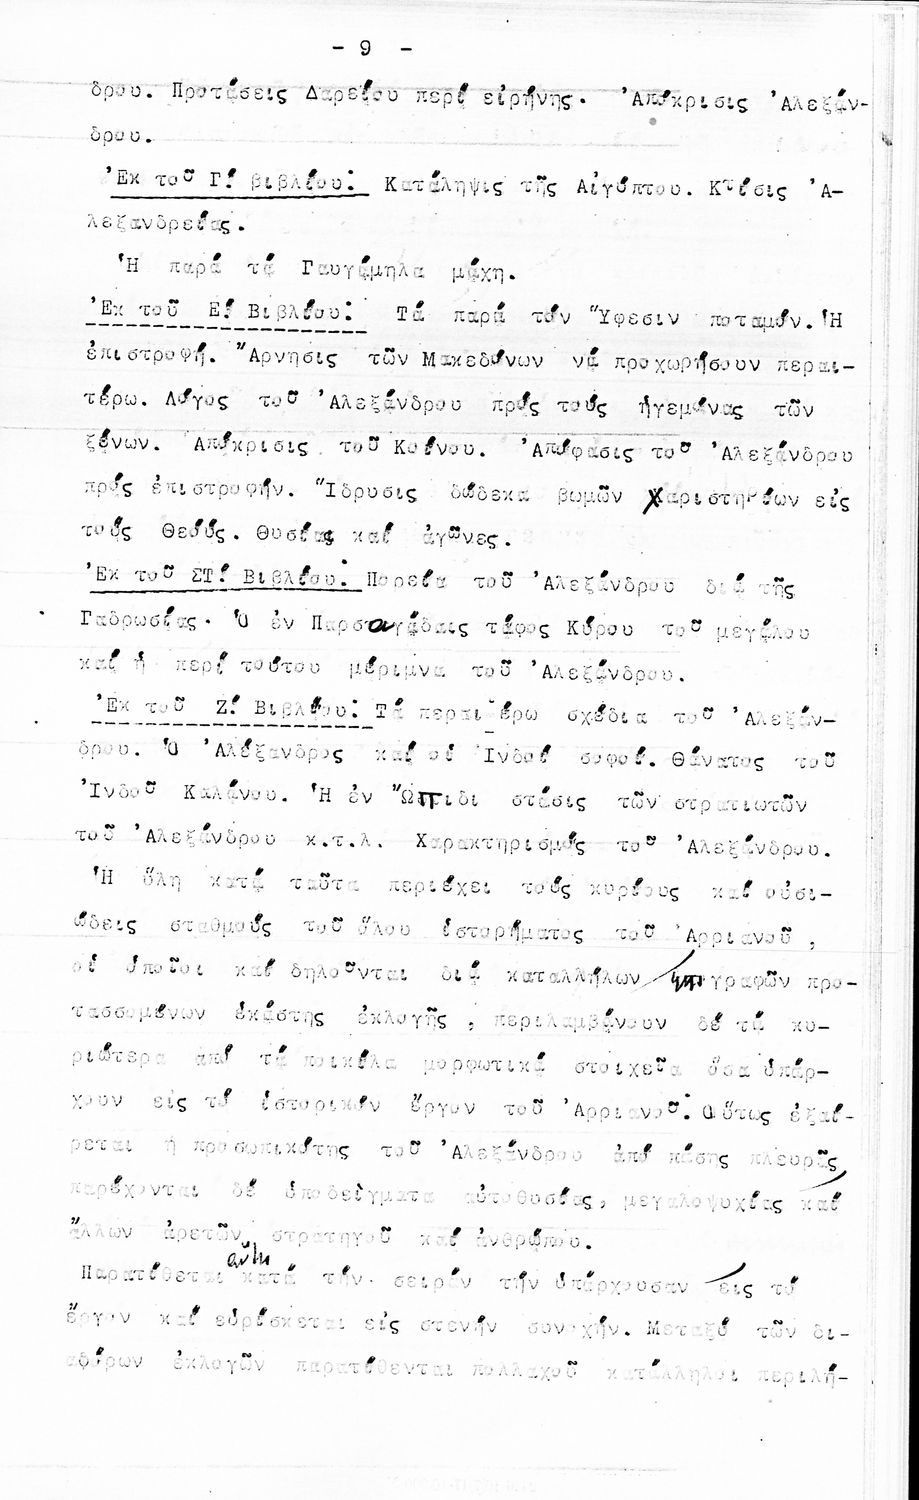 - 9 -
δρου. Προτάσεις Δαρείου περί εἰρήνης. Ἀπόκρισις Ἀλεξάν-
δρου.
Ἐκ τοῦ Γ΄ βιβλίου: Κατάληψις τῆς Αἰγύπτου. Κτίσις Ἀ-
λεξανδρείας.
Ἡ παρά τά Γαυγάμηλα μάχη.
Ἐκ τοῦ Ε΄ Βιβλίου: Τά παρά τόν Ὕφεσιν ποταμόν. Ἡ
ἐπιστροφή. Ἄρνησις τῶν Μακεδόνων νά προχωρήσουν περαι-
τέρω. Λόγος τοῦ Ἀλεξάνδρου πρός τούς ἡγεμόνας τῶν
ξένων. Ἀπόκρισις τοῦ Κοίνου. Ἀπόφασις τοῦ Ἀλεξάνδρου
πρός ἐπιστροφήν. Ἵδρυσις δώδεκα βωμῶν χαριστηρίων εἰς
τούς Θεούς. Θυσίαι καί ἀγῶνες.
Ἐκ τοῦ ΣΤ΄ Βιβλίου: Πορεία τοῦ Ἀλεξάνδρου διά τῆς
Γαδρωσίας. Ὁ ἐν Παρσαγάδαις τάφος Κύρου τοῦ μεγάλου
καί ἡ περί τούτου μέριμνα τοῦ Ἀλεξάνδρου.
Ἐκ τοῦ Ζ΄ Βιβλίου: Τά περαιτέρω σχέδια τοῦ Ἀλεξάν-
δρου. Ὁ Ἀλέξανδρος καί οἱ Ἰνδοί σοφοί. Θάνατος τοῦ
Ἰνδοῦ Καλάνου. Ἡ ἐν Ὤπιδι στάσις τῶν στρατιωτῶν
τοῦ Ἀλεξάνδρου κ.τ.λ. Χαρακτηρισμός τοῦ Ἀλεξάνδρου.
Ἡ ὕλη κατά ταῦτα περιέχει τούς κυρίους καί οὐσι-
ώδεις σταθμούς τοῦ ὅλου ἱστορήματος τοῦ Ἀρριανοῦ,
οἱ ὁποῖοι καί δηλοῦνται διά καταλλήλων ἐπιγραφῶν προ-
τασσομένων ἑκάστης ἐκλογῆς, περιλαμβάνουν δέ τά κυ-
ριώτερα ἀπό τά ποικίλα μορφωτικά στοιχεῖα ὅσα ὑπάρ-
χουν εἰς τό ἱστορικόν ἔργον τοῦ Ἀρριανοῦ. Οὕτως ἐξαί-
ρεται ἡ προσωπικότης τοῦ Ἀλεξάνδρου ἀπό πάσης πλευρᾶς
παρέχονται δέ ὑποδείγματα αὐτοθυσίας, μεγαλοψυχίας καί
ἄλλων ἀρετῶν στρατηγοῦ καί ἀνθρώπου.
Παρατίθεται αὕτη κατά τήν σειράν τήν ὑπάρχουσαν εἰς τό
ἔργον καί εὑρίσκεται εἰς στενήν συνοχήν. Μεταξύ τῶν δι-
αφόρων ἐκλογῶν παρατίθενται πολλαχοῦ κατάλληλοι περιλή-